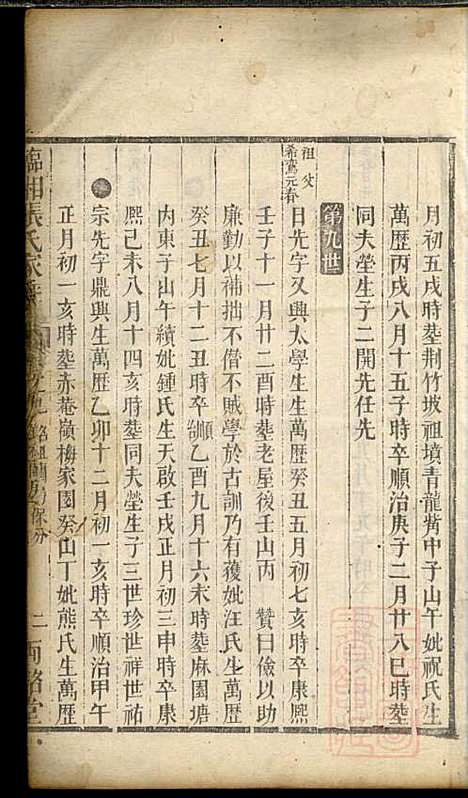 月初五戌時塟荆竹坡祖墳青龍觜中子山午妣祝氏生
萬歷丙戌八月十五子時卒順治庚子二月廿八巳時塟
同夫塋生子二開先任先
第九世
祖父
希鸞元春
日先字又興太學生生萬歷癸丑五月初七亥時卒康熙
壬子十一月廿二酉時塟老屋後壬山丙　贊曰儉以助
廉勤以補拙不僭不賊學於古訓乃有獲妣汪氏生萬歷
癸丑七月十二丑時卒順治乙酉九月十六未時塟麻園塘
内東子山午續妣鍾氏生天啟壬戌正月初三申時卒康
熙己未八月十四亥時塟同夫塋生子三世珍世祥世祐
宗先字鼎興生萬歷乙卯十二月初一亥時卒順治甲午
正月初一亥時塟赤菴嶺梅家園癸山丁妣熊氏生萬歷
臨湘張氏家譜
二